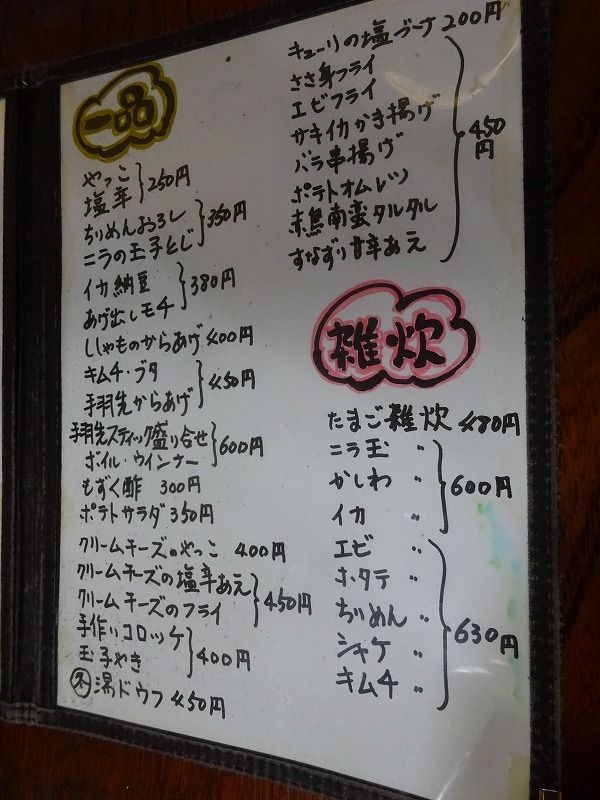 一品
やっこ
塩辛 250円
ちりめんおろし
ニラの玉子とじ 350円
イカ納豆
あげ出しモチ 380円
ししゃものからあげ 400円
キムチ・ブタ
手羽先からあげ 450円
手羽先スティック盛り合せ
ボイル・ウインナー 600円
もずく酢 300円
ポテトサラダ 350円
クリームチーズのやっこ 400円
クリームチーズの塩辛あえ
クリームチーズのフライ 450円
手作りコロッケ
玉子やき 400円
冬 湯ドウフ 450円
キューリの塩ヅーケ 200円
ささ身フライ
エビフライ
サキイカかき揚げ
バラ串揚げ
ポテトオムレツ
赤鳥南蛮タルタル
すなずり甘辛あえ
450円
雑炊
たまご雑炊 480円
ニラ玉 〃
かしわ 〃
イカ 〃
600円
エビ 〃
ホタテ 〃
ちりめん 〃
シャケ 〃
キムチ 〃
630円